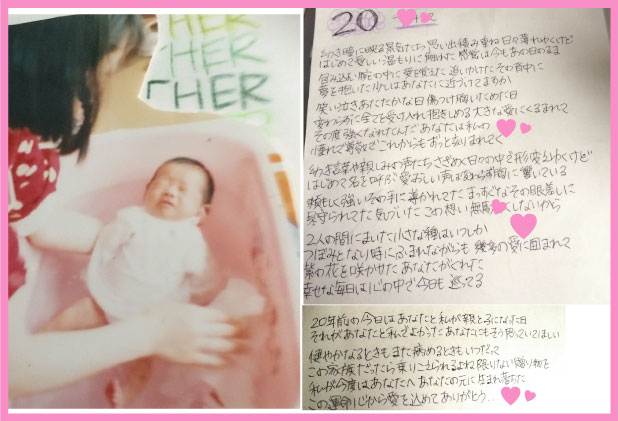 HER
HER
THER
HER
20 HER
幼き瞳に映る景色たち 思い出積み重ね 日々薄れゆくけど
はじめて愛しい温もりに触れた感覚は今もあの日のまま
包み込む腕の中に 愛を覚えた 追いかけたその背中に
夢を抱いた 少しはあなたに近づけてますか
笑い泣きあたたかな日 傷つけ胸いためた日
変わらずに全てを受け入れ抱きしめる 大きな愛にくるまれて
その度強くなれたんだ あなたは私の
憧れで尊敬で これからもずっと刻まれてく
幼き言葉や親しみの声たち さざめく日々の中で形変えゆくけど
はじめて名を呼ぶ 愛おしい声は変わらず胸に響いている
頼もしく強いその手に導かれてた まっすぐなその眼差しに
見守られてた 気づいた この想い無駄 くしないから
2人の間にまいた小さな種はいつしか
つぼみとなり 時にふまれながらも 幾多の愛に囲まれて
紫の花を咲かせた あなたがくれた
幸せな毎日は 心の中で今日も 巡ってる
20年前の今日は あなたと私が親と子になった日
それがあなたと私でよかった あなたにもそう思っていてほしい
健やかなるときも また病めるときも いつだって
この家族だったら乗りこえられるよね 限りない贈り物を
私が今度は あなたへ あなたの元に 生まれ落ちた
この運命 心から愛を込めて ありがとう…